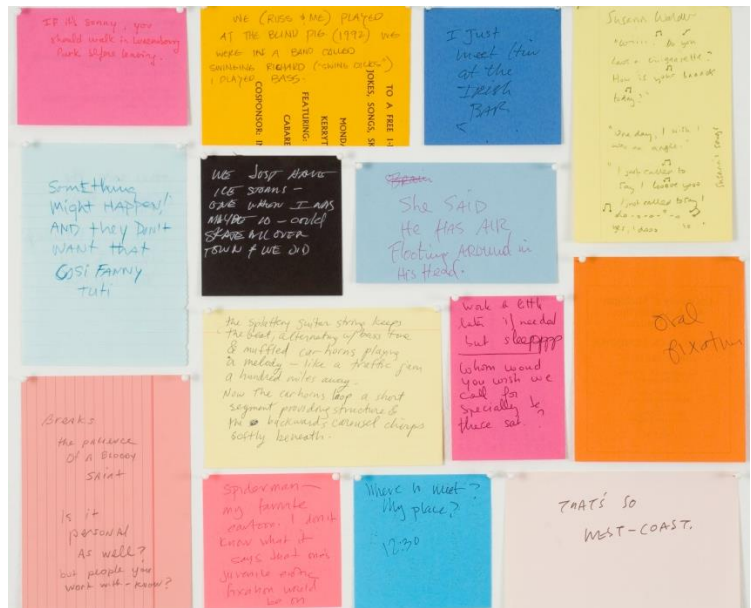 If it's sunny, you
should walk in Luxembourg
Park before leaving.
WE (RUSS & ME) PLAYED
AT THE BLIND PIG (1992) WE
WERE IN A BAND CALLED
SWINGING RICHARD ("SWING DICKS")
I PLAYED BASS.
TO A FREE
JOKES, SONGS, SK
MONDA
KERRYT
FEATURING:
CABARE
COSPONSOR:
I Just
meet him
at the
IRISH
BAR
Do you
have a
How is your
today?"
"One day, I wish I
was an angel."
"I just called to
say I love you
I just called to say I
Something
Might HAPPEN!
AND they DON'T
WANT that
COSI FANNY
TUTI
WE JUST HAVE
ICE STORMS –
ONE WHEN I WAS
MAYBE 10 – could
SKATE ALL OVER
TOWN & WE DID
She SAID
He HAS AIR
Floating AROUND in
His Head.
the spluttery guitar string keeps
the beat, alternating w/ bass tone
& muffled car horns playing
a melody – like a traffic jam
a hundred miles away.
Now the car horns loop a short
segment providing structure &
the backwards carousel chirps
softly beneath.
work a little
late if needed
but sleepppp
Whom would
you wish we
call for
specially to
these sat.?
oral
fixation
Breaks
the patience
OF A Bloody
SAINT
Is it
PERSONAL
AS well?
but people you
work with – know?
Spiderman –
my favorite
cartoon. I don't
know what it
says but our
juvenile
fixation would
be on
Where to meet?
My place?
12:30
THAT'S SO
WEST-COAST.